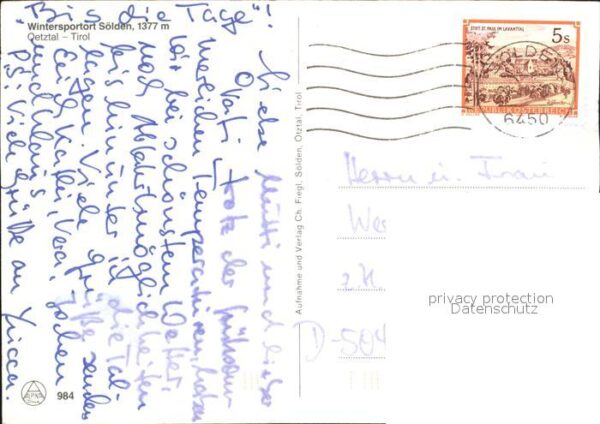 Wintersportort Sölden, 1377 m
Oetztal – Tirol
"Bis die Tage"!
Liebe Mutti und lieber
Vati! Trotz der frühsom-
merlichen Temperaturen, haben
wir bei schönstem Wetter
noch Abfahrtmöglichkeiten
bis hinunter in die Tal-
lagen. Viele Grüße senden
Euch Karli, Vera, Jochen
und Klaus
P.S. Viele Grüße an
Aufnahme und Verlag Ch. Fiegl, Sölden, Ötztal, Tirol
STIFT ST. PAUL IM LAVANTTAL
5s
REPUBLIK ÖSTERREICH
SÖLDEN
6450
Herrn u. Frau
Wes
z.H.
D-504
privacy protection
Datenschutz
984